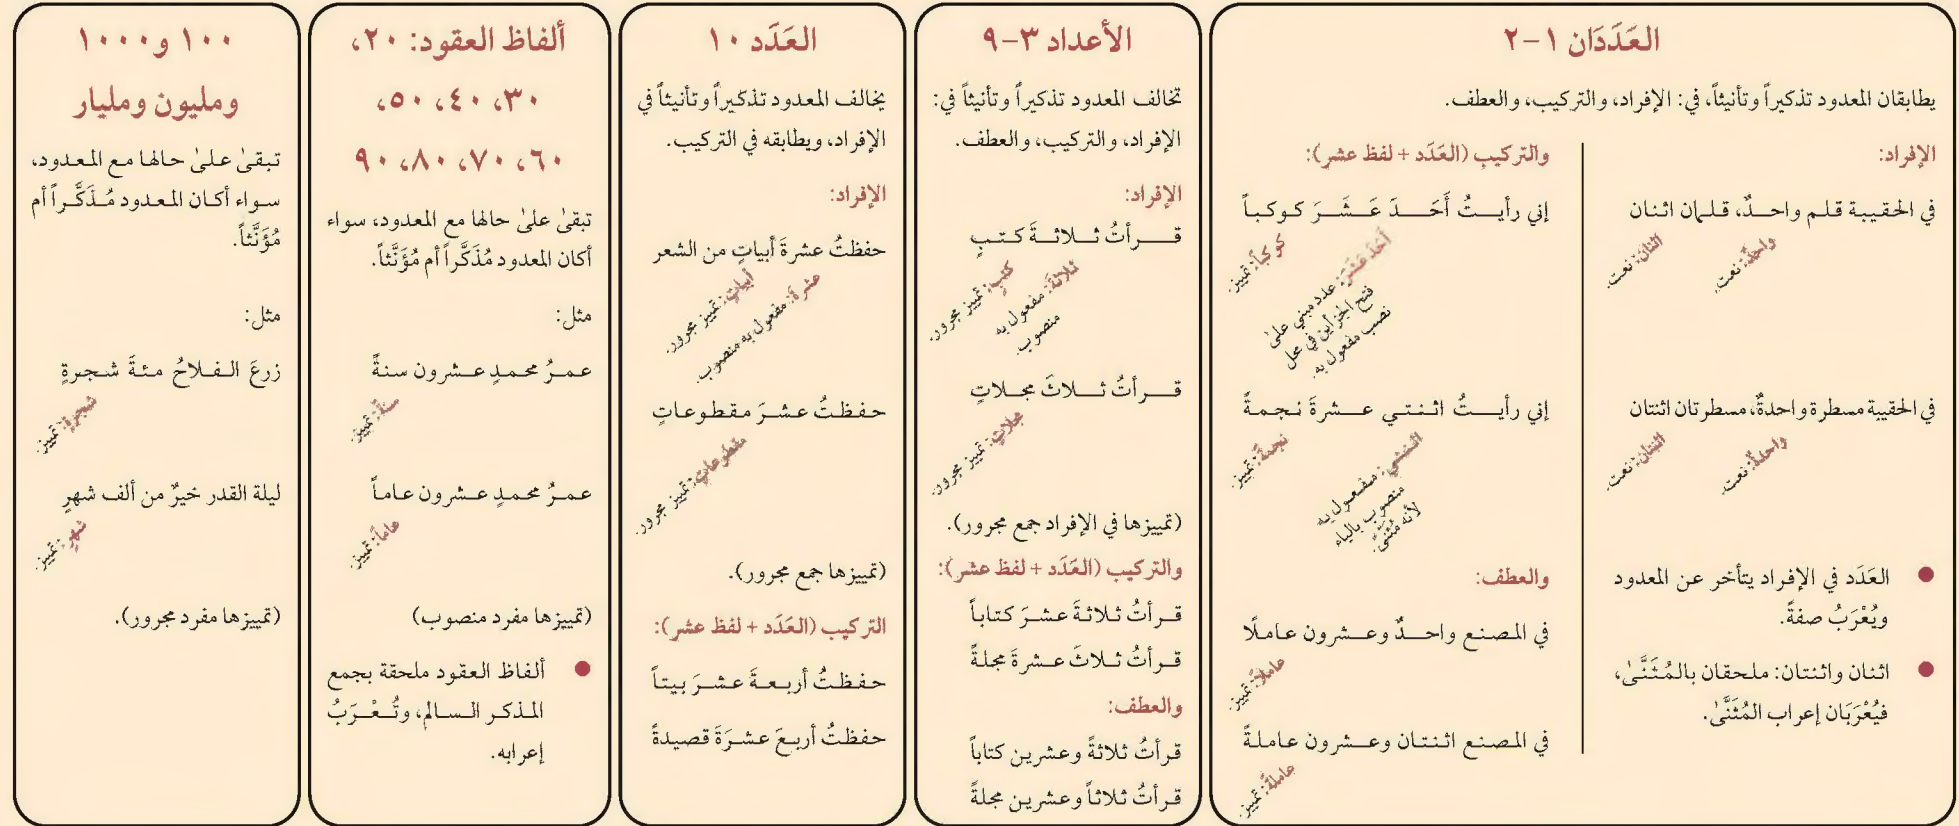 العَدَدَان ١-٢
يطابقان المعدود تذكيراً وتأنيثاً، في: الإفراد، والتركيب، والعطف.
الإفراد:
في الحقيبة قلم واحدٌ، قلمان اثنان
واحدٌ: نعت.
اثنان: نعت.
في الحقيبة مسطرة واحدةٌ، مسطرتان اثنتان
واحدةٌ: نعت.
اثنتان: نعت.
● العَدَد في الإفراد يتأخر عن المعدود
ويُعْرَبُ صفةً.
● اثنان واثنتان: ملحقان بالمُثَنَّىٰ،
فيُعْرَبَان إعراب المُثَنَّىٰ.
والتركيب (العَدَد + لفظ عشر):
إني رأيتُ أَحَدَ عَشَرَ كوكباً
أَحَدَ عَشَرَ: عدد مبني علىٰ
فتح الجزأين في محل
نصب مفعول به.
كوكباً: تمييز.
إني رأيتُ اثنتي عشرةَ نجمةً
اثنتي: مفعول به
منصوب بالياء
لأنه مُثَنَّىٰ.
نجمةً: تمييز.
والعطف:
في المصنع واحدٌ وعشرون عاملًا
عاملًا: تمييز.
في المصنع اثنتان وعشرون عاملةً
عاملةً: تمييز.
الأعداد ٣-٩
تخالف المعدود تذكيراً وتأنيثاً في:
الإفراد، والتركيب، والعطف.
الإفراد:
قرأتُ ثلاثةَ كتبٍ
ثلاثةَ: مفعول به
منصوب.
كتبٍ: تمييز مجرور.
قرأتُ ثلاثَ مجلاتٍ
مجلاتٍ: تمييز مجرور.
(تمييزها في الإفراد جمع مجرور).
والتركيب (العَدَد + لفظ عشر):
قرأتُ ثلاثةَ عشرَ كتاباً
قرأتُ ثلاثَ عشرةَ مجلةً
والعطف:
قرأتُ ثلاثةً وعشرين كتاباً
قرأتُ ثلاثاً وعشرين مجلةً
العَدَد ١٠
يخالف المعدود تذكيراً وتأنيثاً في
الإفراد، ويطابقه في التركيب.
الإفراد:
حفظتُ عشرةَ أبياتٍ من الشعر
عشرةَ: مفعول به منصوب.
أبياتٍ: تمييز مجرور.
حفظتُ عشرَ مقطوعاتٍ
مقطوعاتٍ: تمييز مجرور.
(تمييزها جمع مجرور).
التركيب (العَدَد + لفظ عشر):
حفظتُ أربعةَ عشرَ بيتاً
حفظتُ أربعَ عشرَةَ قصيدةً
ألفاظ العقود: ٢٠،
٣٠، ٤٠، ٥٠،
٦٠، ٧٠، ٨٠، ٩٠
تبقىٰ علىٰ حالها مع المعدود، سواء
أكان المعدود مُذَكَّراً أم مُؤَنَّثاً.
مثل:
عمرُ محمدٍ عشرون سنةً
سنةً: تمييز.
عمرُ محمدٍ عشرون عاماً
عاماً: تمييز.
(تمييزها مفرد منصوب)
● ألفاظ العقود ملحقة بجمع
المذكر السالم، وتُعْرَبُ
إعرابه.
١٠٠ و١٠٠٠
ومليون ومليار
تبقىٰ علىٰ حالها مع المعدود،
سواء أكان المعدود مُذَكَّراً أم
مُؤَنَّثاً.
مثل:
زرعَ الفلاحُ مئةَ شجرةٍ
شجرةٍ: تمييز.
ليلة القدر خيرٌ من ألف شهرٍ
شهرٍ: تمييز.
(تمييزها مفرد مجرور).